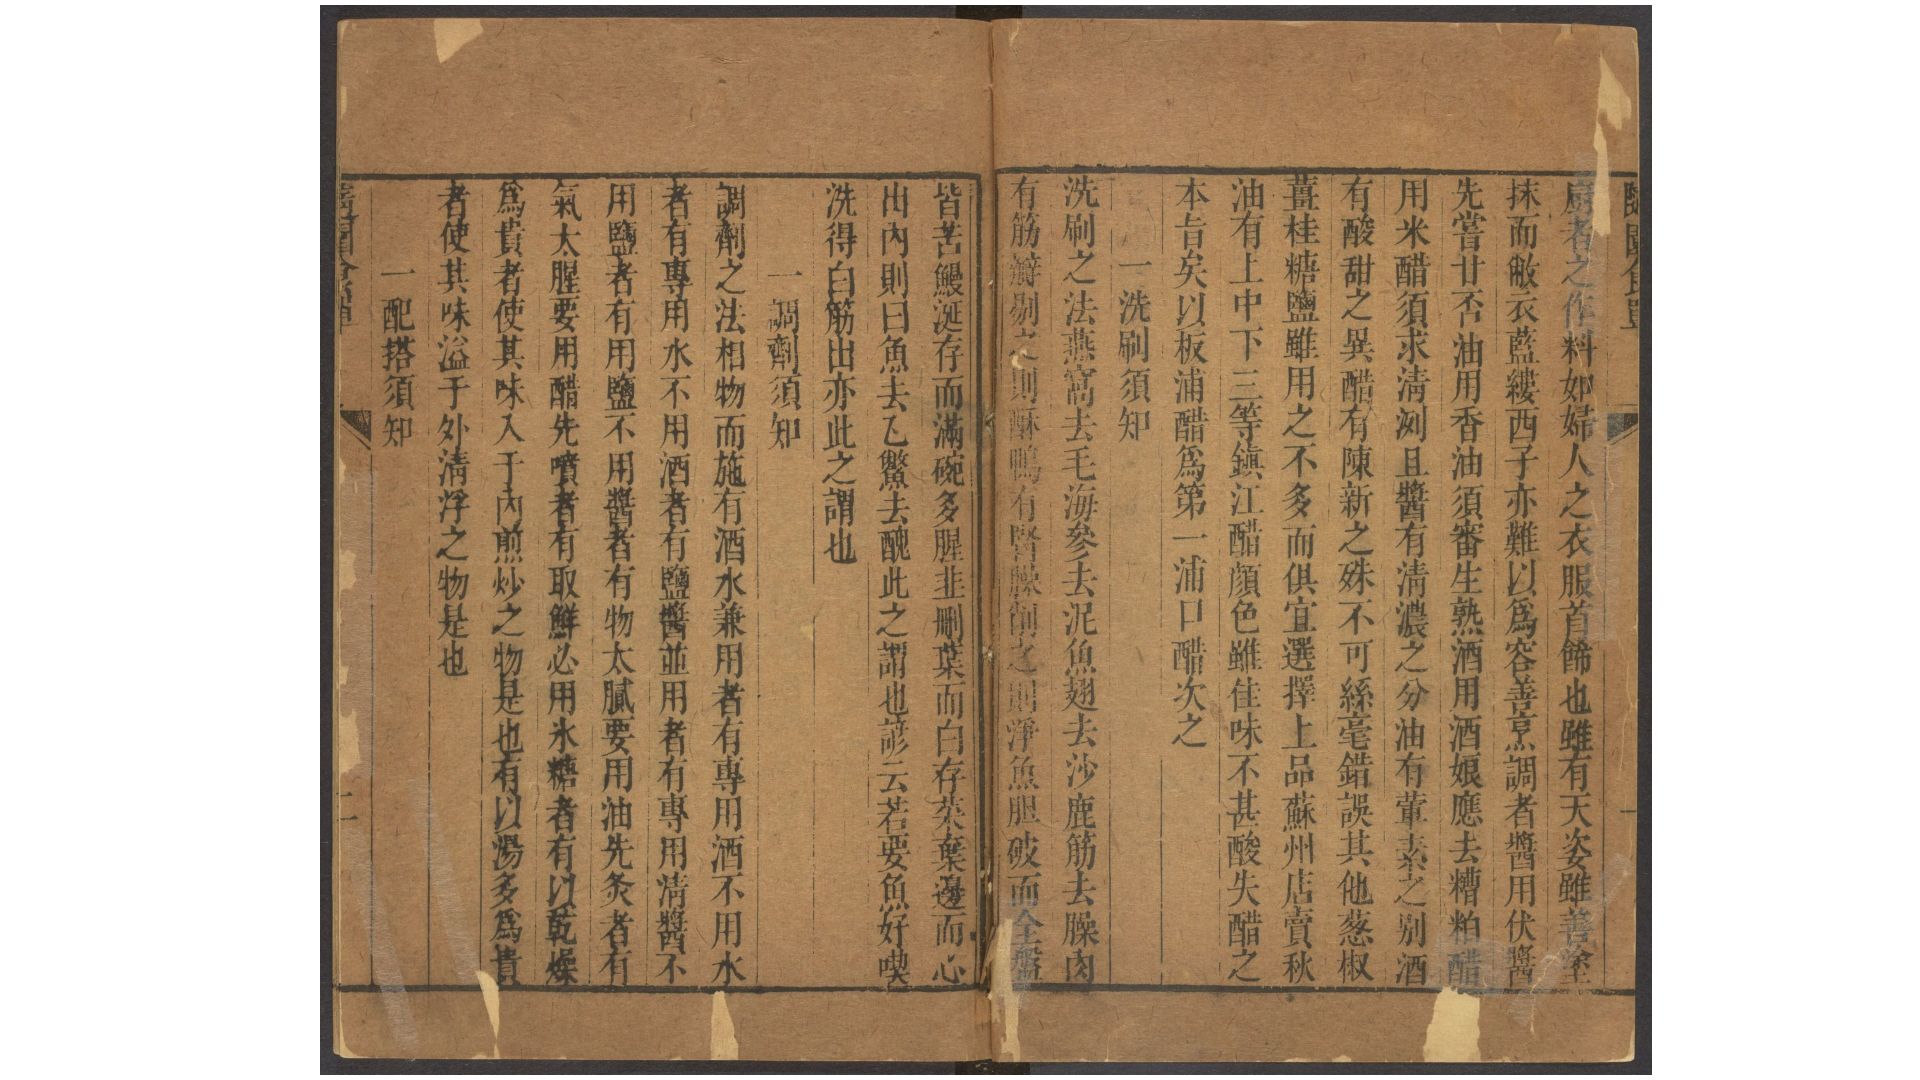 隨園食單
一
廚者之作料如婦人之衣服首飾也雖有天姿雖善塗
抹而敝衣藍縷西子亦難以爲容善烹調者醬用伏醬
先嘗甘否油用香油須審生熟酒用酒娘應去糟粕醋
用米醋須求淸洌且醬有淸濃之分油有葷素之别酒
有酸甜之異醋有陳新之殊不可絲毫錯誤其他葱椒
薑桂糖鹽雖用之不多而俱宜選擇上品蘇州店賣秋
油有上中下三等鎭江醋顔色雖佳味不甚酸失醋之
本旨矣以板浦醋爲第一浦口醋次之
一洗刷須知
洗刷之法燕窩去毛海參去泥魚翅去沙鹿筋去臊肉
有筋瓣剔之則酥鴨有腎臊削之則淨魚胆破而全盤
皆苦鰻涎存而滿碗多腥韭删葉而白存菜棄邊而心
出内則曰魚去乙鱉去醜此之謂也諺云若要魚好喫
洗得白筋出亦此之謂也
一調劑須知
調劑之法相物而施有酒水兼用者有專用酒不用水
者有專用水不用酒者有鹽醬並用者有專用淸醬不
用鹽者有用鹽不用醬者有物太膩要用油先炙者有
氣太腥要用醋先噴者有取鮮必用氷糖者有以乾燥
爲貴者使其味入于内煎炒之物是也有以湯多爲貴
者使其味溢于外淸浮之物是也
一配搭須知
隨園食單
二